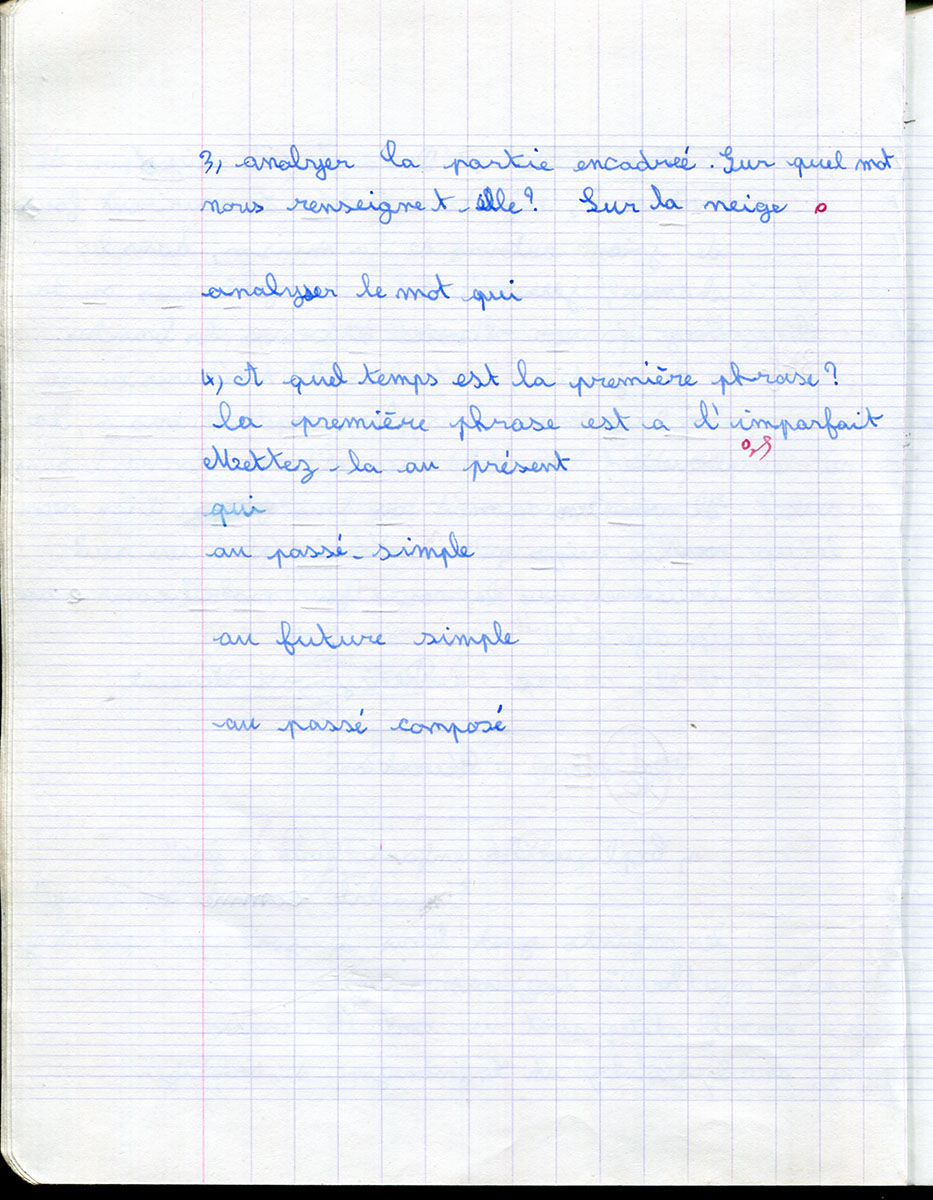 3, analyser la partie encadreé. Sur quel mot
nous renseignet-elle? Sur la neige
analyser le mot qui
4, A quel temps est la première phrase?
la première phrase est a l'imparfait
Mettez-la au présent
qui
au passé-simple
au future simple
au passé composé